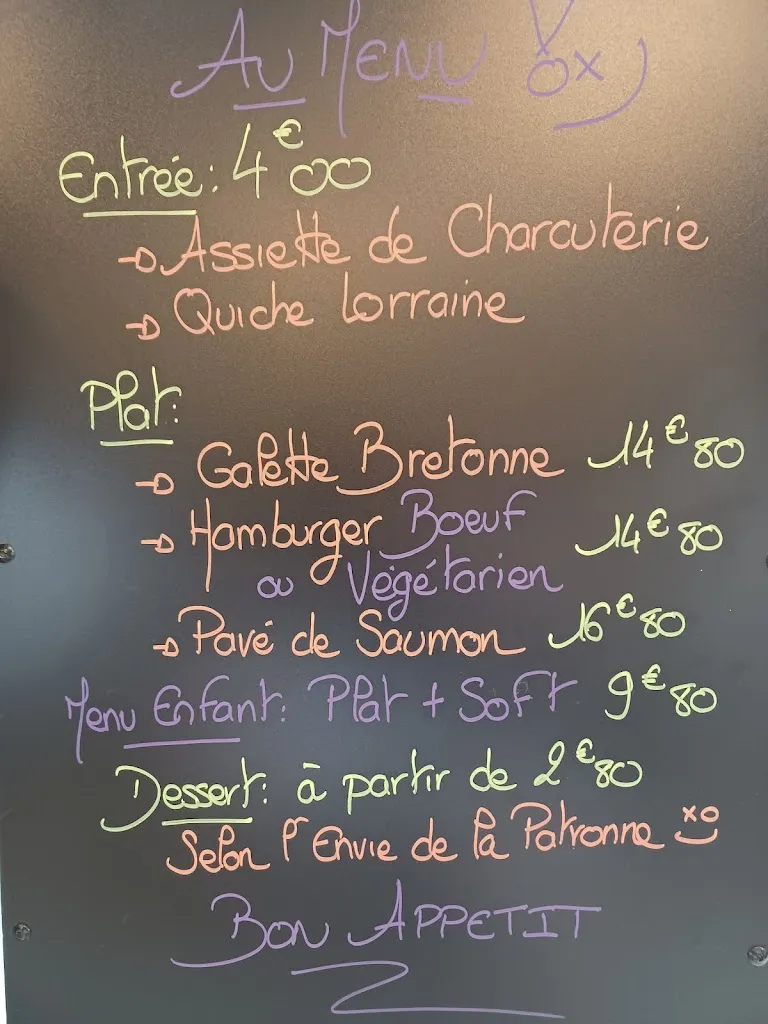 Au Menu
Entrée: 4€00
→ Assiette de Charcuterie
→ Quiche Lorraine
Plat:
→ Galette Bretonne 14€80
→ Hamburger Boeuf 14€80
ou Végétarien
→ Pavé de Saumon 16€80
Menu Enfant: Plat + Soft 9€80
Dessert: à partir de 2€80
Selon l'Envie de la Patronne
Bon APPETIT